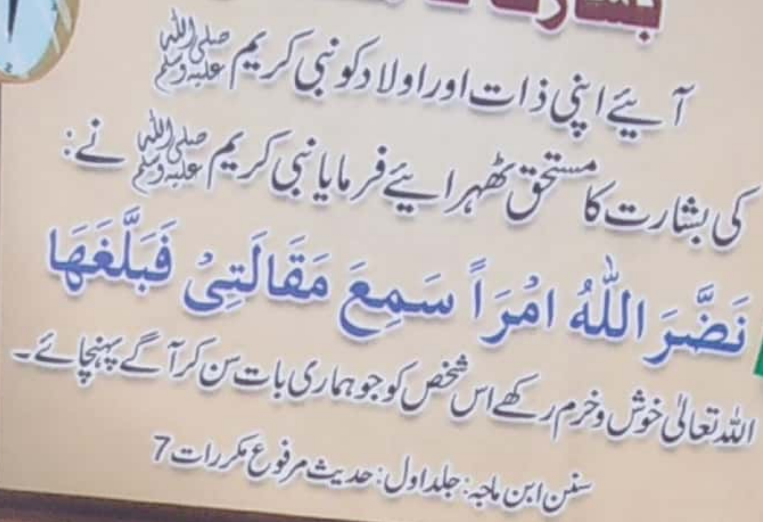 بشارت
آئیے اپنی ذات اور اولاد کو نبی کریم صلی اللہ علیہ وسلم
کی بشارت کا مستحق ٹھہرائیے فرمایا نبی کریم صلی اللہ علیہ وسلم نے:
نَضَّرَ اللّٰهُ امْرَاً سَمِعَ مَقَالَتِیْ فَبَلَّغَهَا
اللہ تعالیٰ خوش و خرم رکھے اس شخص کو جو ہماری بات سن کر آگے پہنچائے۔
سنن ابن ماجہ: جلد اول: حدیث مرفوع مکررات 7